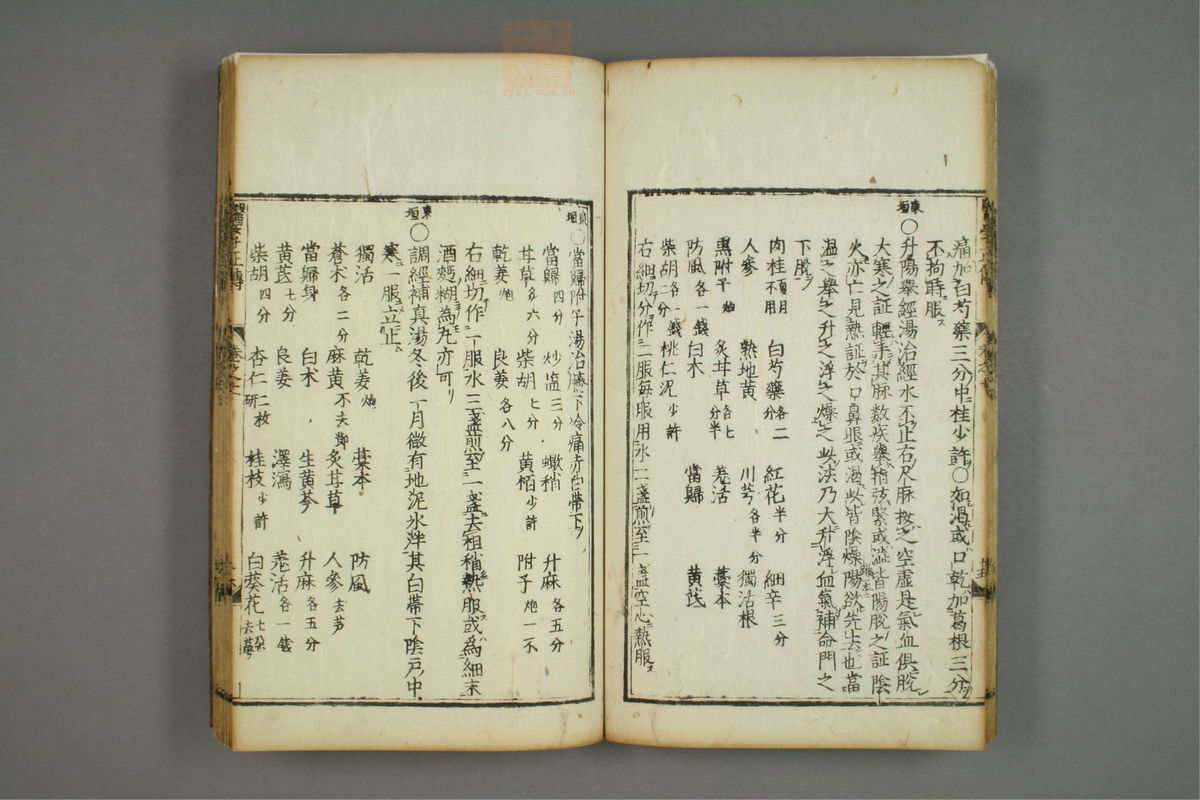 痛加白芍藥三分中桂少許〇如渴或口乾加葛根三分
不拘時服
東垣
〇升陽舉經湯治經水不止右尺脉按之空虛是氣血俱脫
大寒之証輕手其脉數疾舉指弦緊或濇皆陽脫之証陰
火亦亡見熱証於口鼻眼或渴此皆陰燥陽欲先去也當
温之舉之升之浮之燥之此法乃大升浮血氣補命門之
下脫
肉桂夏月不用 白芍藥各二分 紅花半分 細辛三分
人參 熟地黄 川芎各半分 獨活根
黒附子炮 炙甘草各七分半 羗活 藁本
防風各一錢 白术 當歸 黄芪
柴胡二分 桃仁泥少許
右細切分作二服每服用水二盞煎至一盞空心熱服
東垣
〇當歸附子湯治臍下冷痛赤白帶下
當歸四分 炒塩三分 蠍稍 升麻各五分
甘草炙六分 柴胡七分 黄栢少許 附子炮一不
乾姜炮 良姜各八分
右細切作一服水三盞煎至一盞去粗稍熱服或爲細末
酒麫糊為丸亦可
東垣
〇調經補真湯冬後一月微有地泥氷泮其白帶下陰戸中
寒一服立止
獨活 乾姜炮 藁本 防風
蒼术各二分 麻黄不去節 炙甘草 人參去芦
當歸身 白术 生黄芩 升麻各五分
黄芪七分 良姜 澤瀉 羗活各一錢
柴胡四分 杏仁二枚研 桂枝少許 白葵花七朶去萼
zysj.com.cn